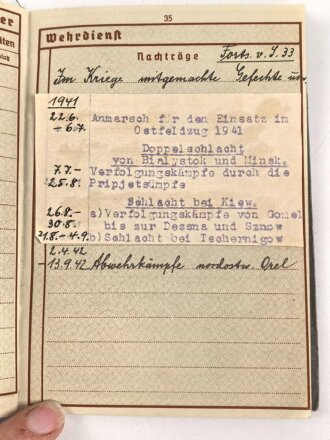 35
Wehrdienst
Nachträge Forts. v. S. 33
Im Kriege mitgemachte Gefechte
1941
22.6. Anmarsch für den Einsatz im
- 6.7. Ostfeldzug 1941
Doppelschlacht
von Bialystok und Minsk.
7.7.- Verfolgungskämpfe durch die
25.8. Pripjetsümpfe
Schlacht bei Kiew.
26.8.- a)Verfolgungskämpfe von Gomel
30.8. bis zur Dessna und Sznow
31.8.-4.9. b)Schlacht bei Tschernigow
2.4.42
-13.9.42 Abwehrkämpfe nordostw. Orel